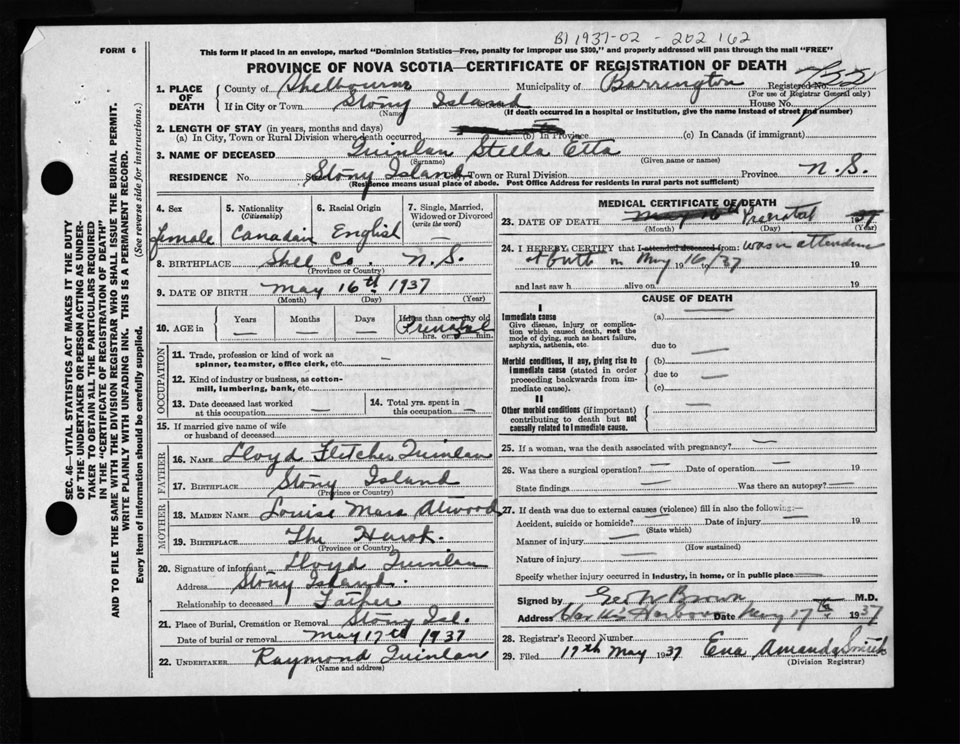 B1 1937-02 - 202162
FORM 6
This form if placed in an envelope, marked "Dominion Statistics—Free, penalty for improper use $300," and properly addressed will pass through the mail "FREE"
PROVINCE OF NOVA SCOTIA—CERTIFICATE OF REGISTRATION OF DEATH
1. PLACE OF DEATH County of Shelbourne Municipality of Barrington Registered No. 722
(For use of Registrar General only)
If in City or Town Stony Island House No.
(Name) (If death occurred in a hospital or institution, give the name instead of street and number)
2. LENGTH OF STAY (in years, months and days)
(a) In City, Town or Rural Division where death occurred (b) In Province (c) In Canada (if immigrant)
3. NAME OF DECEASED Quinlan Stella Etta
(Surname) (Given name or names)
RESIDENCE No. Stony Island City, Town or Rural Division Province N.S.
(Residence means usual place of abode. Post Office Address for residents in rural parts not sufficient)
4. Sex 5. Nationality (Citizenship) 6. Racial Origin 7. Single, Married, Widowed or Divorced (write the word)
female Canadain English
8. BIRTHPLACE Shel Co. N.S.
(Province or Country)
9. DATE OF BIRTH May 16th 1937
(Month) (Day) (Year)
10. AGE in Years Months Days If less than one day old
Prenatal
hrs. or min.
OCCUPATION
11. Trade, profession or kind of work as spinner, teamster, office clerk, etc.
12. Kind of industry or business, as cotton-mill, lumbering, bank, etc.
13. Date deceased last worked at this occupation — 14. Total yrs. spent in this occupation —
15. If married give name of wife or husband of deceased
FATHER
16. NAME Lloyd Fletcher Quinlan
17. BIRTHPLACE Stony Island
(Province or Country)
MOTHER
18. MAIDEN NAME Louise Atwood
19. BIRTHPLACE The Hawk.
(Province or Country)
20. Signature of informant Lloyd Quinlan
Address Stony Island.
Relationship to deceased Father
21. Place of Burial, Cremation or Removal Stony Isl.
Date of burial or removal May 17th 1937
22. UNDERTAKER Raymond Quinlan
(Name and address)
MEDICAL CERTIFICATE OF DEATH
23. DATE OF DEATH May 16th Prenatal 37
(Month) (Day) (Year)
24. I HEREBY CERTIFY that I attended deceased from: was in attendence
at birth on May 16/37 19
and last saw h alive on 19
CAUSE OF DEATH
I
Immediate cause (a) —
Give disease, injury or complication which caused death, not the mode of dying, such as heart failure, asphyxia, asthenia, etc.
due to —
Morbid conditions, if any, giving rise to immediate cause (stated in order proceeding backwards from immediate cause).
(b) —
due to —
(c) —
II
Other morbid conditions (if important) contributing to death but not causally related to immediate cause.
25. If a woman, was the death associated with pregnancy? —
26. Was there a surgical operation? — Date of operation —
State findings — Was there an autopsy? —
27. If death was due to external causes (violence) fill in also the following:—
Accident, suicide or homicide? — Date of injury — 19
(State which)
Manner of injury —
(How sustained)
Nature of injury —
Specify whether injury occurred in industry, in home, or in public place —
Signed by Geo W Brown M.D.
Address Clarks Harbour Date May 17th 1937
28. Registrar's Record Number
29. Filed 17th May 1937 Ena Amanda Smith
(Division Registrar)
SEC. 46—VITAL STATISTICS ACT MAKES IT THE DUTY
OF THE UNDERTAKER OR PERSON ACTING AS UNDERTAKER TO OBTAIN ALL THE PARTICULARS REQUIRED
IN THE "CERTIFICATE OF REGISTRATION OF DEATH"
AND TO FILE THE SAME WITH THE DIVISION REGISTRAR WHO SHALL ISSUE THE BURIAL PERMIT.
WRITE PLAINLY WITH UNFADING INK. THIS IS A PERMANENT RECORD.
Every item of information should be carefully supplied. (See reverse side for instructions.)